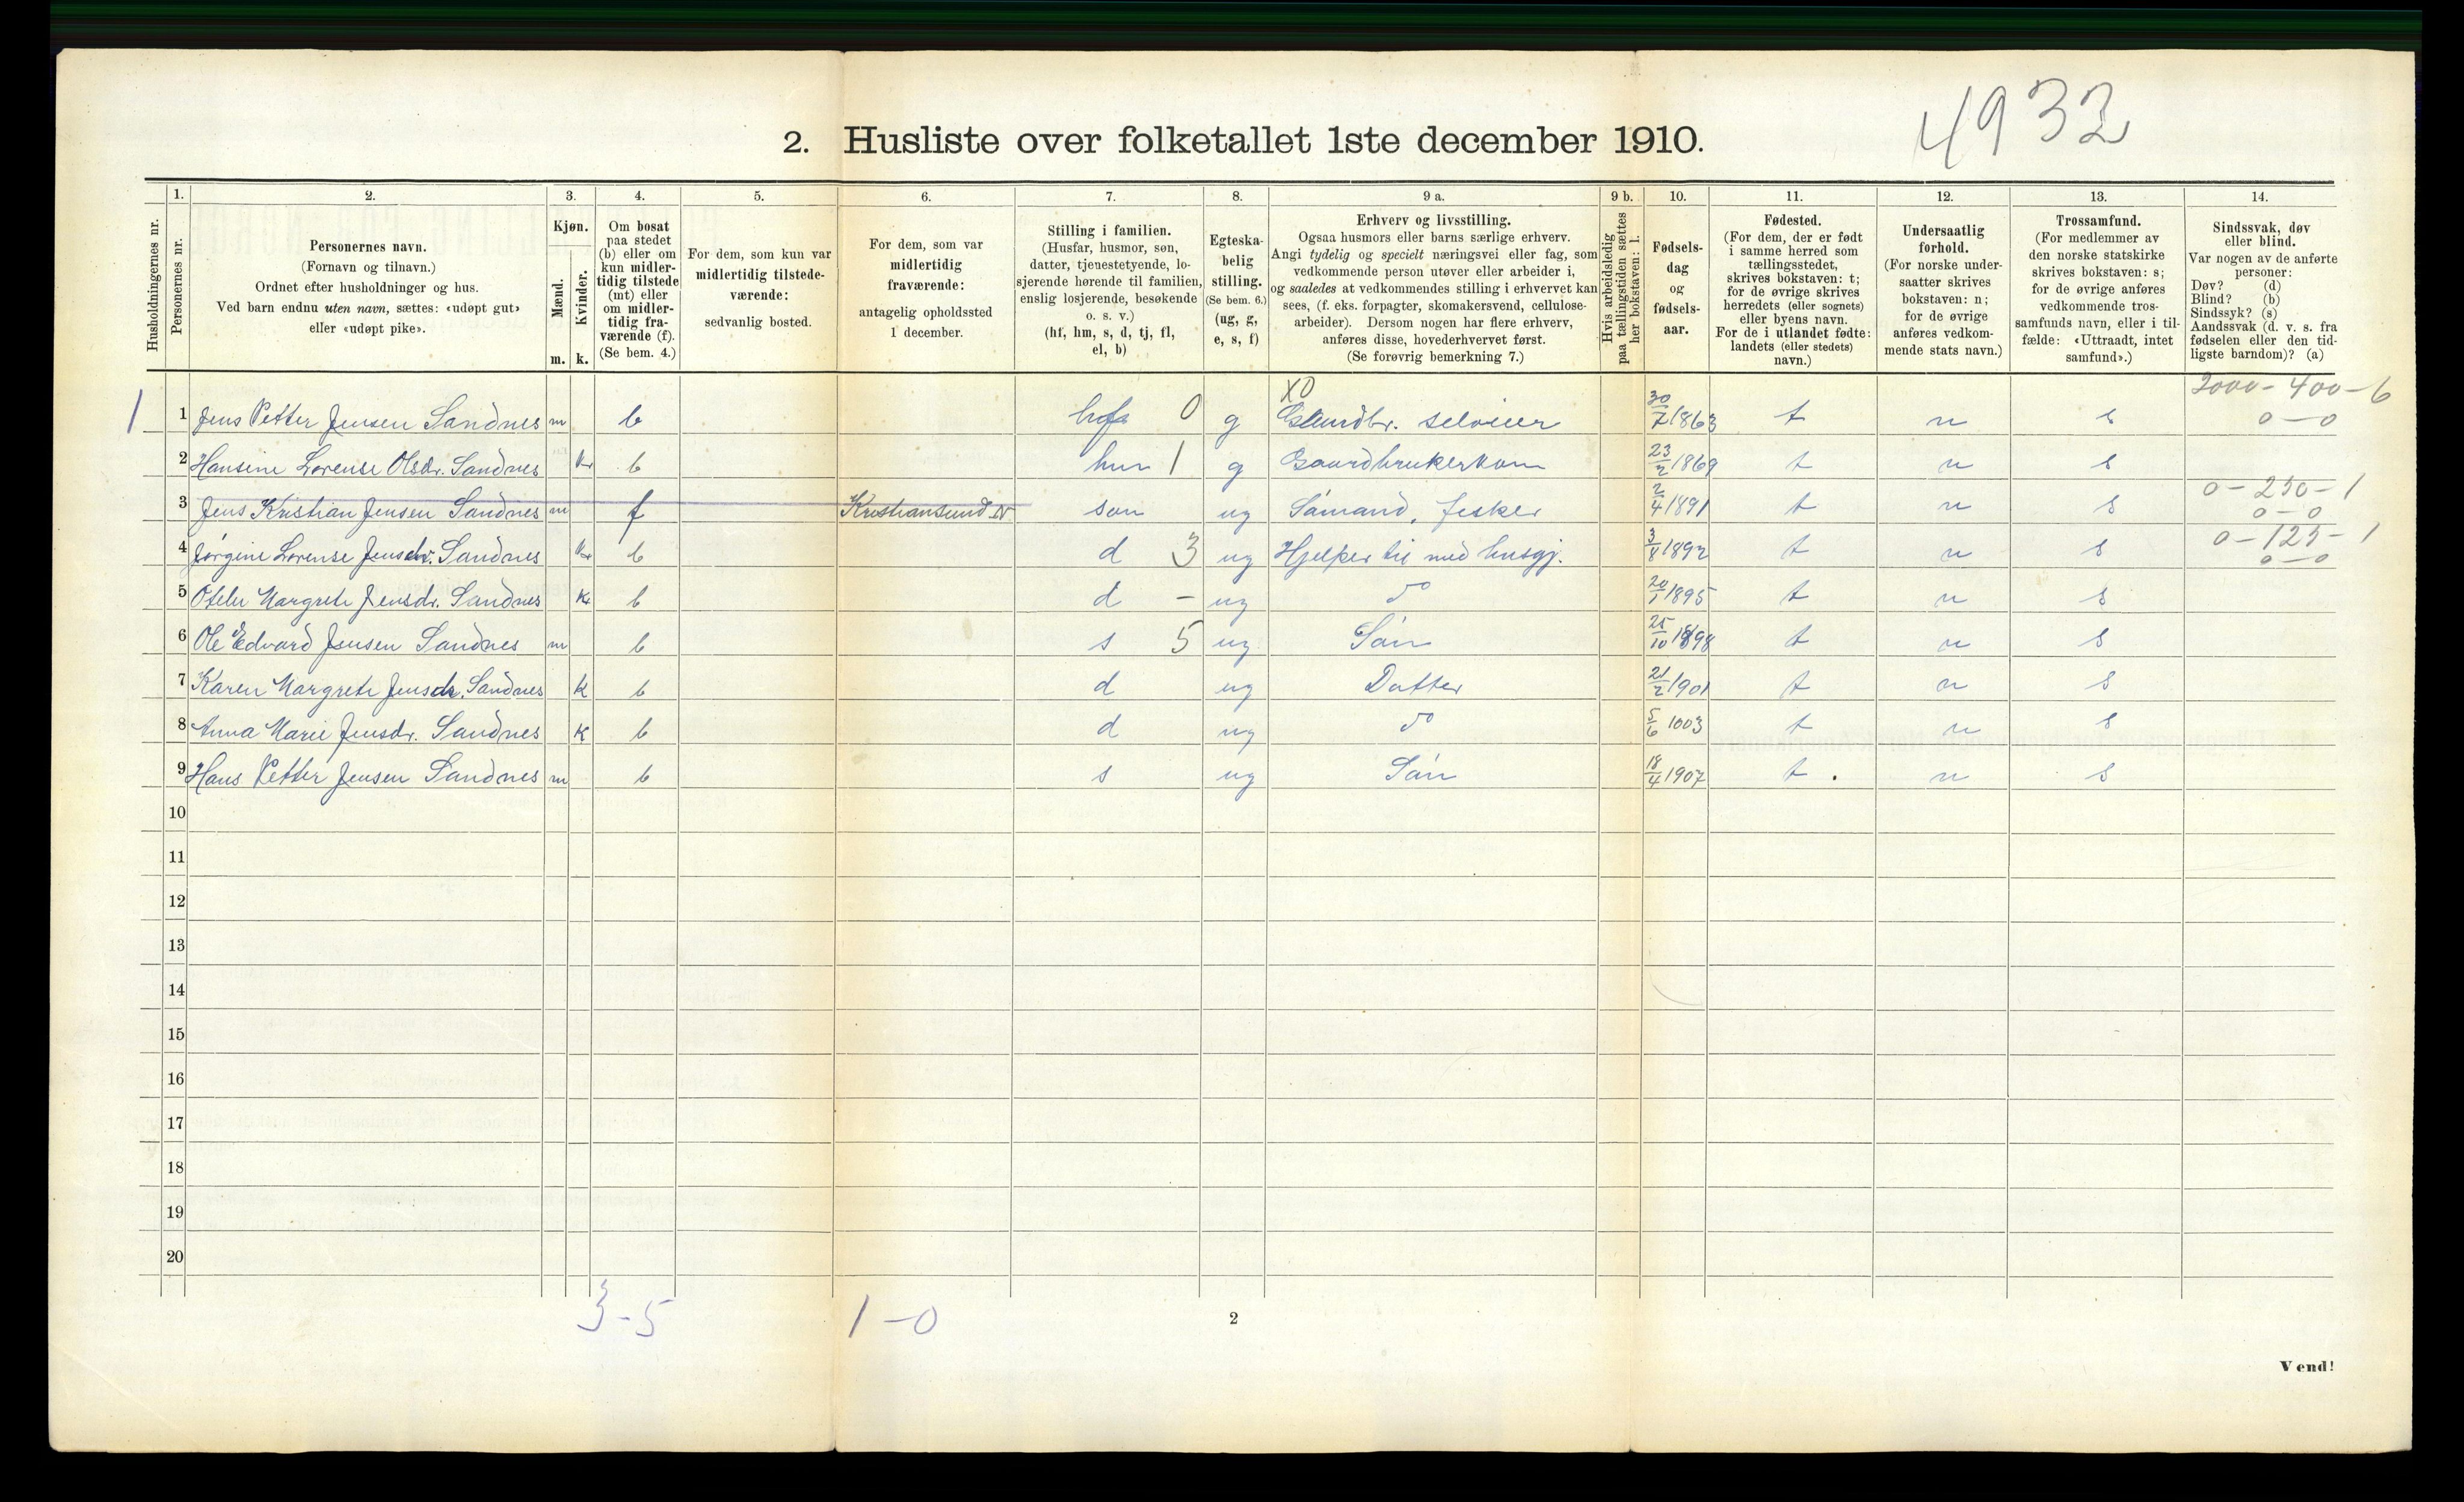 4932
2. Husliste over folketallet 1ste december 1910.
Husholdningernes nr.
1.
Personernes nr.
2.
Personernes navn.
(Fornavn og tilnavn.)
Ordnet efter husholdninger og hus.
Ved barn endnu uten navn, sættes: «udøpt gut»
eller «udøpt pike».
3.
Kjøn.
Mænd.
Kvinder.
m. k.
4.
Om bosat
paa stedet
(b) eller om
kun midler-
tidig tilstede
(mt) eller
om midler-
tidig fra-
værende (f).
(Se bem. 4.)
5.
For dem, som kun var
midlertidig tilstede-
værende:
sedvanlig bosted.
6.
For dem, som var
midlertidig
fraværende:
antagelig opholdssted
1 december.
7.
Stilling i familien.
(Husfar, husmor, søn,
datter, tjenestetyende, lo-
sjerende hørende til familien,
enslig losjerende, besøkende
o. s. v.)
(hf, hm, s, d, tj, fl,
el, b)
8.
Egteska-
belig
stilling.
(Se bem. 6.)
(ug, g,
e, s, f)
9 a.
Erhverv og livsstilling.
Ogsaa husmors eller barns særlige erhverv.
Angi tydelig og specielt næringsvei eller fag, som
vedkommende person utøver eller arbeider i,
og saaledes at vedkommendes stilling i erhvervet kan
sees, (f. eks. forpagter, skomakersvend, cellulose-
arbeider). Dersom nogen har flere erhverv,
anføres disse, hovederhvervet først.
(Se forøvrig bemerkning 7.)
9 b.
Hvis arbeidsledig
paa tællingstiden sættes
her bokstaven: l.
10.
Fødsels-
dag
og
fødsels-
aar.
11.
Fødested.
(For dem, der er født
i samme herred som
tællingsstedet,
skrives bokstaven: t;
for de øvrige skrives
herredets (eller sognets)
eller byens navn.
For de i utlandet fødte:
landets (eller stedets)
navn.)
12.
Undersaatlig
forhold.
(For norske under-
saatter skrives
bokstaven: n;
for de øvrige
anføres vedkom-
mende stats navn.)
13.
Trossamfund.
(For medlemmer av
den norske statskirke
skrives bokstaven: s;
for de øvrige anføres
vedkommende tros-
samfunds navn, eller i til-
fælde: «Uttraadt, intet
samfund».)
14.
Sindssvak, døv
eller blind.
Var nogen av de anførte
personer:
Døv? (d)
Blind? (b)
Sindssyk? (s)
Aandssvak (d. v. s. fra
fødselen eller den tid-
ligste barndom)? (a)
X0 2000-400-6
1 1 Jens Petter Jensen Sandnes m b 0 g Gaardbr. selveier 30/7 1863 t n s 0-0
2 Hansine Lorense Olsdr. Sandnes k b hm 1 g Gaardbrukerkone 23/2 1869 t n s
0-250-1
3 Jens Kristian Jensen Sandnes m f Kristiansund N søn ug Sømand, fisker 2/4 1891 t n s 0-0
0-125-1
4 Jørgine Lorense Jensdr. Sandnes k b d 3 ug Hjelper til med husgj. 3/8 1892 t n s 0-0
5 Margrete Jensdr. Sandnes k b d - ug do 20/1 1895 t n s
6 Ole Edvard Jensen Sandnes m b s 5 ug Søn 25/10 1898 t n s
7 Karen Margrete Jensdr. Sandnes k b d ug Datter 21/2 1901 t n s
8 Anna Marie Jensdr. Sandnes k b d ug do 5/6 1003 t n s
9 Hans Petter Jensen Sandnes m b s ug Søn 18/4 1907 t . n s
10
11
12
13
14
15
16
17
18
19
20
3-5 1-0
2
Vend!